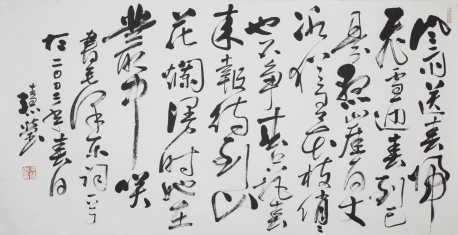 風雨送春歸
飛雪迎春到已
是懸崖百丈
冰猶有花枝俏
也不争春只把春
来報待到山
花爛漫时她在
叢中咲
書毛泽东词一首
二〇〇二年春日